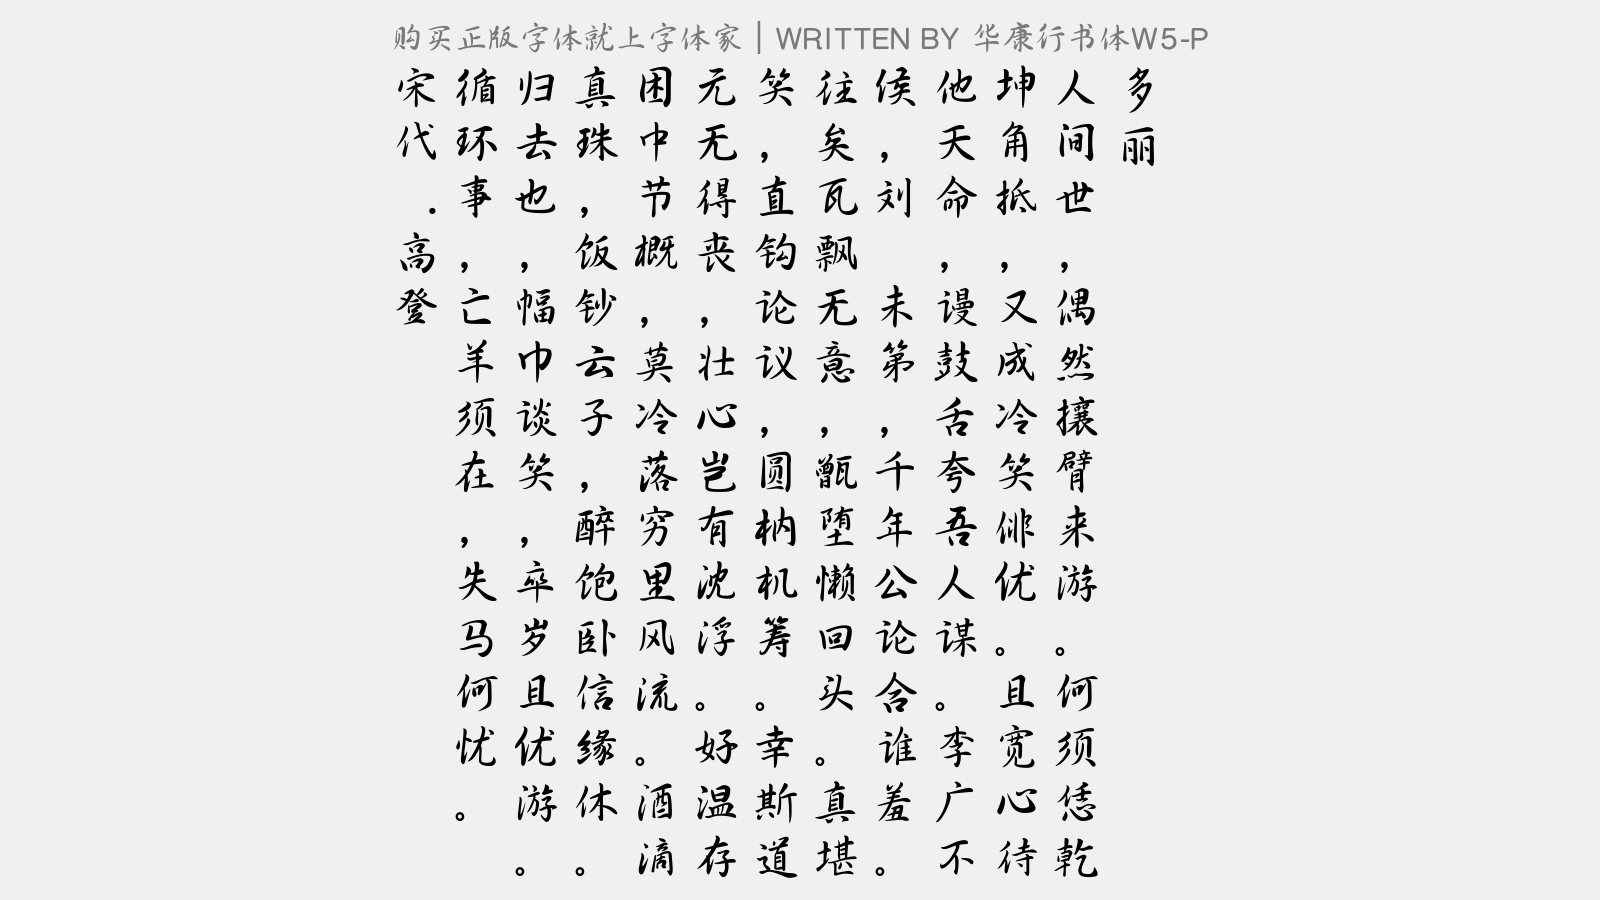 购买正版字体就上字体家 | WRITTEN BY 华康行书体W5-P
多丽
人间世，偶然攘臂来游。何须恁乾
坤角抵，又成冷笑俳优。且宽心待
他天命，谩鼓舌夸吾人谋。李广不
侯，刘 未第，千年公论合谁羞。
往矣瓦飘无意，甑堕懒回头。真堪
笑，直钩论议，圆枘机筹。幸斯道
元无得丧，壮心岂有沈浮。好温存
困中节概，莫冷落穷里风流。酒滴
真珠，饭钞云子，醉饱卧信缘休。
归去也，幅巾谈笑，卒岁且优游。
循环事，亡羊须在，失马何忧。
宋代.高登